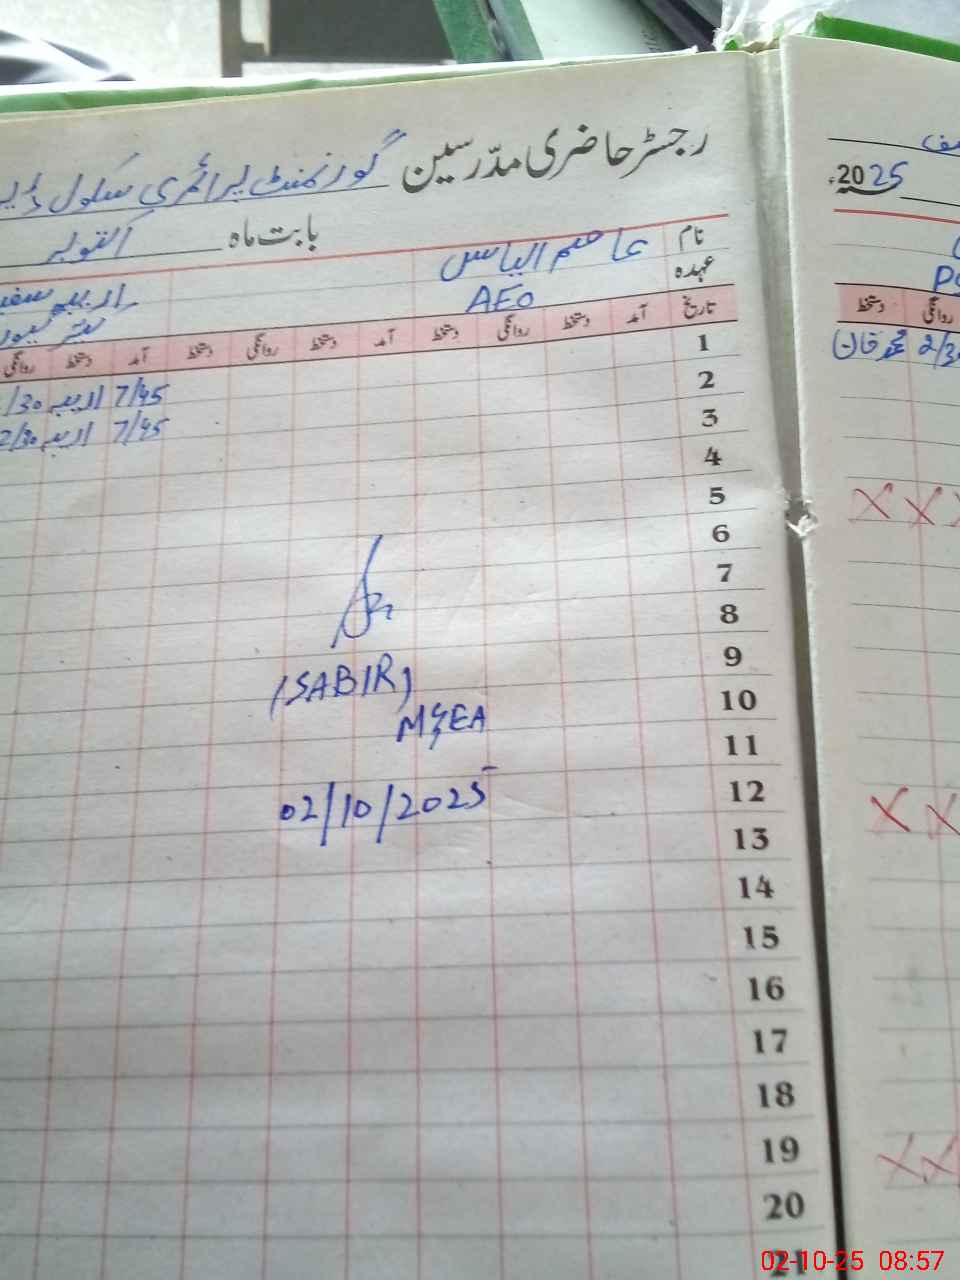 رجسٹر حاضری مدرسین گورنمنٹ پرائمری سکول
بابت ماہ اکتوبر
2025ء
نام عاصم الیاس
عہدہ AEO
تاریخ آمد دستخط روانگی دستخط آمد دستخط روانگی دستخط آمد دستخط روانگی
دستخط روانگی
1
محمد خان 2/30
2 7/45 اریبہ /30
3 7/45 اریبہ 2/30
4
5
X X X
6
7
8
9
(SABIR)
10
M&EA
11
12
02/10/2025
X X
13
14
15
16
17
18
19
X X
20
21
02-10-25 08:57